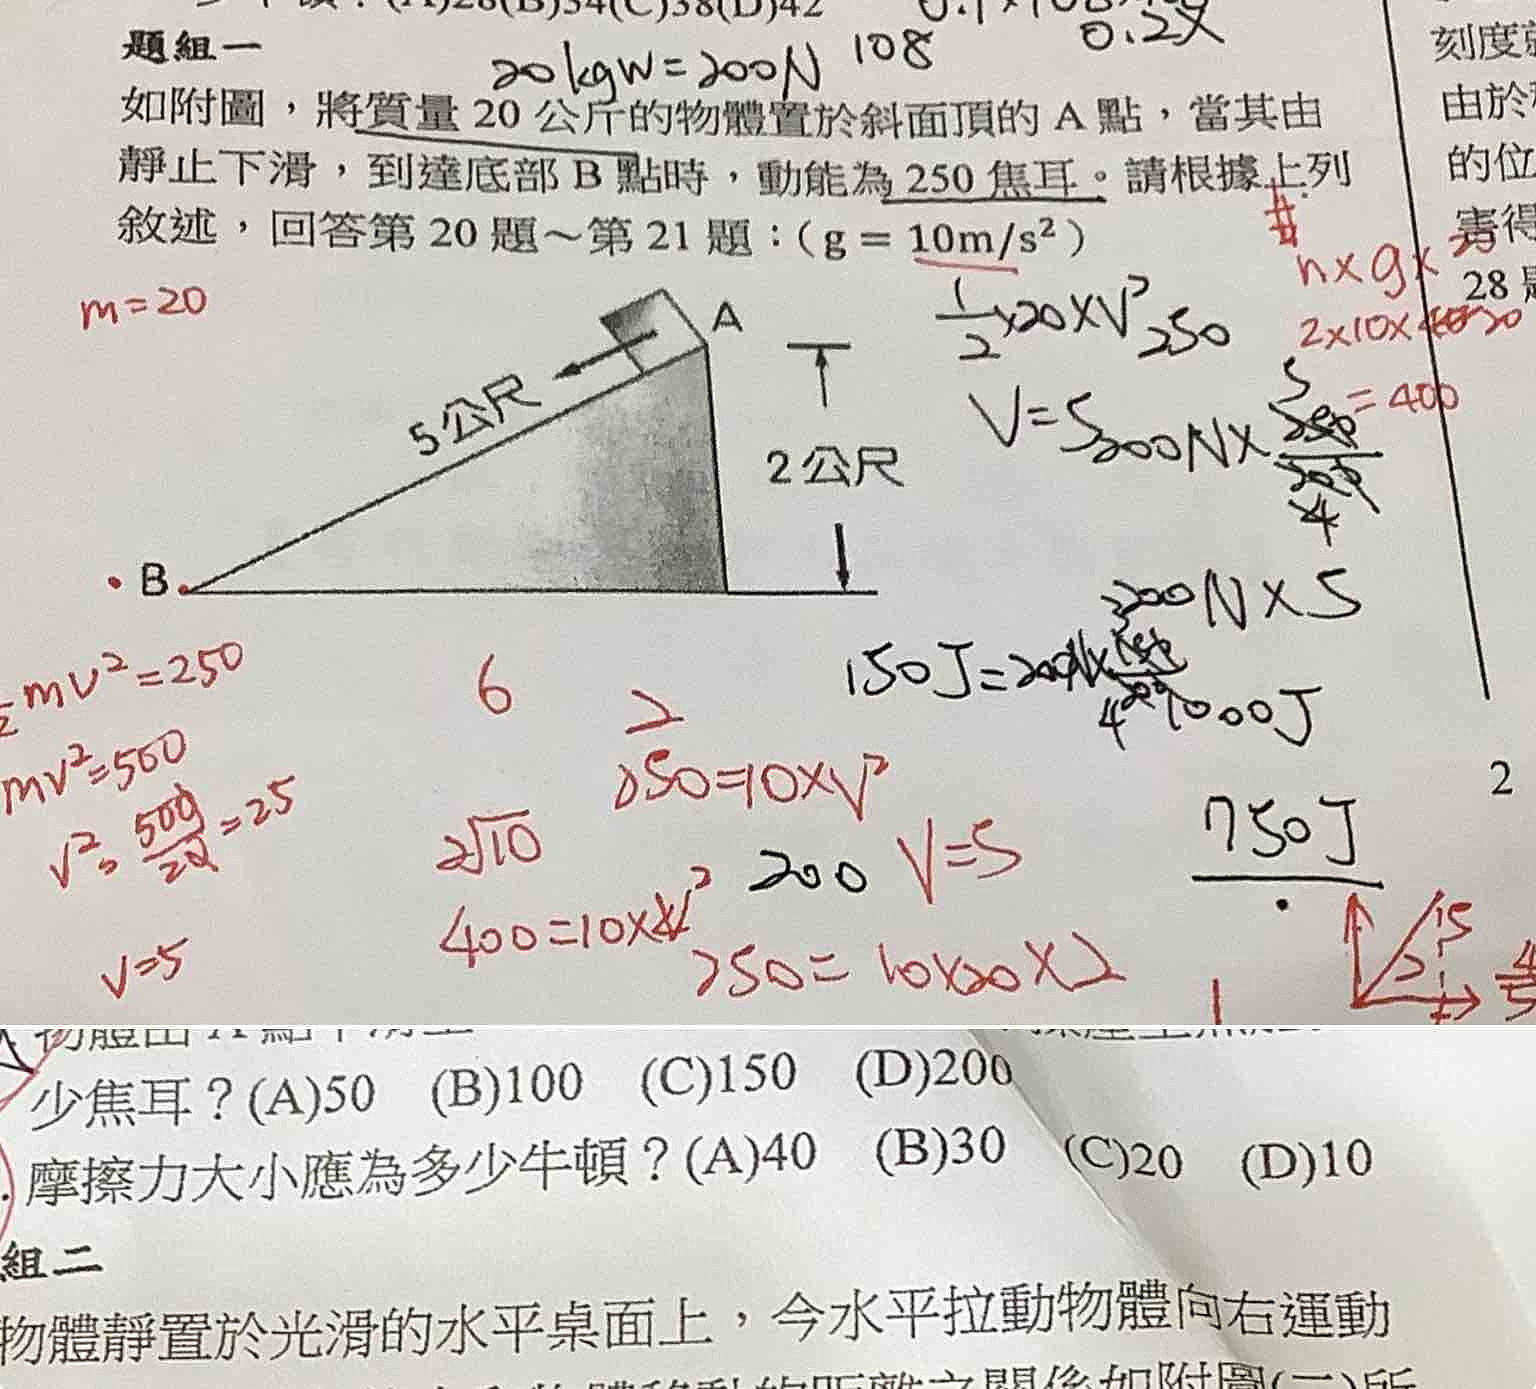 (A)28(B)34(C)38(D)42
0.2X
題組一
20kgw=200N 108
如附圖，將質量 20 公斤的物體置於斜面頂的 A 點，當其由
靜止下滑，到達底部 B 點時，動能為 250 焦耳。請根據上列
敘述，回答第 20 題～第 21 題：(g = 10m/s²)
刻度
由於
的位
28
m=20
A
5公尺
2公尺
B
1/2×20×V² 250
V=5
200N×
=400
200N×5
150J=200N×
1000J
750J
mv²=250
mv²=500
v²=500/20=25
v=5
6
2
250=10×V²
2√10
200
V=5
400=10×
250=10×20×2
2
少焦耳？(A)50 (B)100 (C)150 (D)200
摩擦力大小應為多少牛頓？(A)40 (B)30 (C)20 (D)10
組二
物體靜置於光滑的水平桌面上，今水平拉動物體向右運動
物體移動的距離之關係如附圖(二)所